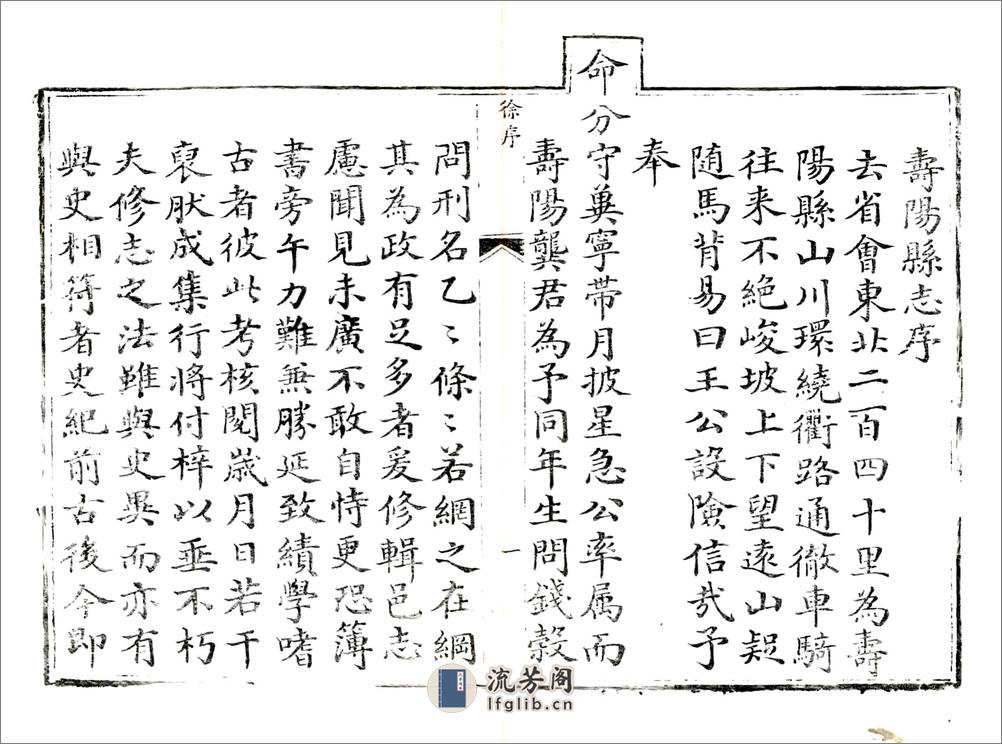 壽陽縣志序
去省會東北二百四十里為壽
陽縣山川環繞衢路通徹車騎
往来不絕峻坡上下望遠山疑
随馬背易曰王公設險信㢤予
奉
命分守冀寧带月披星急公率属而
壽陽龔君為予同年生問錢榖
徐序
一
問刑名乙〻條〻若網之在綱
其為政有足多者爰修輯邑志
慮聞見未廣不敢自恃更恐簿
書旁午力難兼勝延致績學嗜
古者彼此考核閱歲月日若干
裒肰成集行将付梓以垂不朽
夫修志之法雖與史異而亦有
與史相符者史紀前古後今即
流芳阁
lfglib.cn